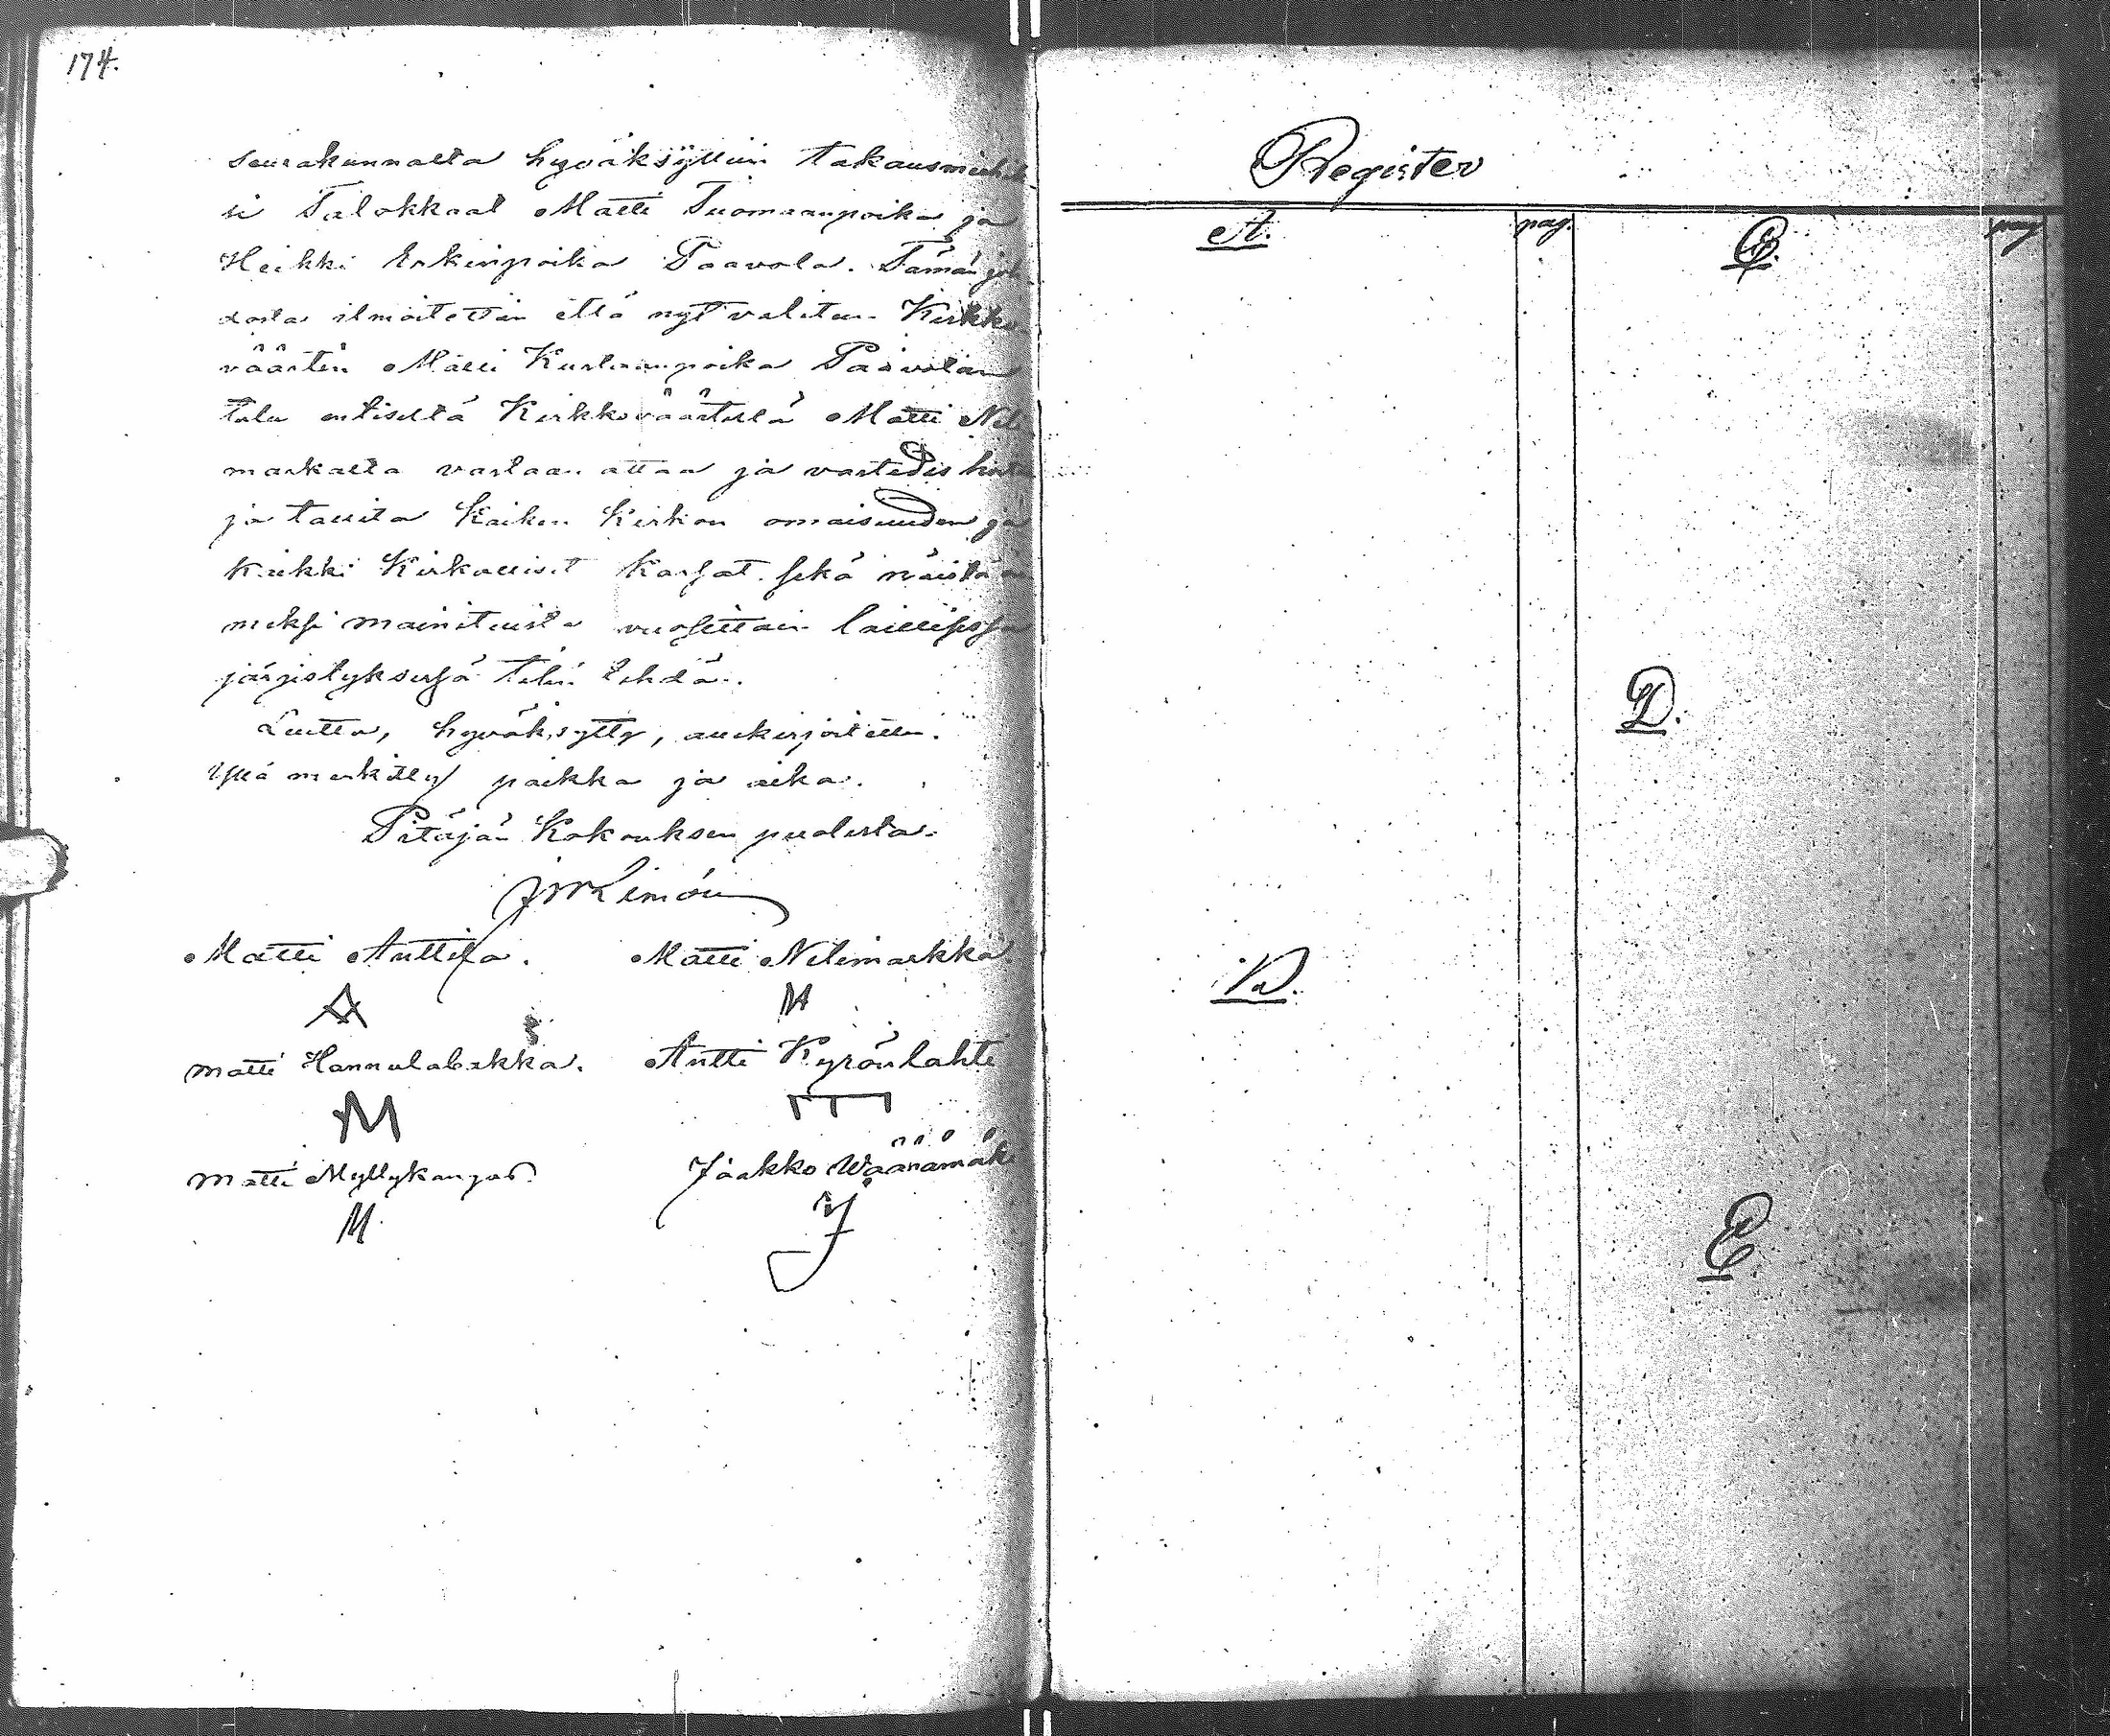 174.
seurakunnalta hyväksyttiin takausmiehik
si Talokkaat Matti Tuomaanpoika ja
Heikki Erkinpoika Paavola. Tämän joh
dosta ilmoitettiin että nyt valitun Kirkko-
väärtin Matti Kustaanpoika Paavolan
tulee entiseltä Kirkkoväärtiltä Matti Neli
markalta vastaan ottaa ja vastedes hoitaa
ja tallita Kaiken Kirkon omaisuuden ja
Kaikki Kirkolliset Kassat sekä näistä
neksi mainituista vuosittain laillisessa
järjestyksessä tilin tehdä.
Luettu, hyväksytty, allekirjoitettu.
Yllä merkitty paikka ja aika.
Pitäjän Kokouksen puolesta.
Matti Anttila. Matti Nelimarkka.
M
Matti Hannulabakka. Antti Kyrönlahti
M
Matti Myllykangas. Jaakko Wäänämäki
M. J
Register
A. pag. C. pag
D.
B.
E